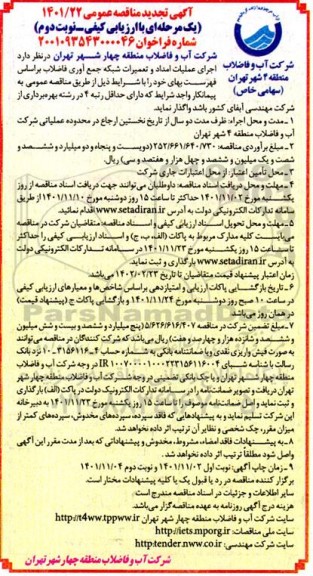 آگهی تجدید مناقصه عمومی ۱۴۰۱/۲۲
(یک مرحله‌ای با ارزیابی کیفی_نوبت دوم)
شماره فراخوان ۲۰۰۱۰۹۳۵۴۳۰۰۰۰۴۶
شرکت آب و فاضلاب
منطقه ۴ شهر تهران
(سهامی خاص)
شرکت آب و فاضلاب منطقه چهار شهر تهران در نظر دارد
اجرای عملیات امداد و تعمیرات شبکه جمع آوری فاضلاب براساس
فهرست بهای خود را با شرایط ذیل از طریق مناقصه عمومی به
پیمانکار واجد شرایط که دارای حداقل رتبه ۴ در رشته بهره‌برداری از
شرکت مهندسی آبفای کشور باشد واگذار نماید.
۱_مدت و محل اجراء: ظرف مدت دو سال از تاریخ نخستین ارجاع در محدوده عملیاتی شرکت
آب و فاضلاب منطقه ۴ شهر تهران
۲_مبلغ برآوردی مناقصه: ۲۵۲/۶۶۱/۶۴۰/۷۳۰ (دویست و پنجاه و دو میلیارد و ششصد و
شصت و یک میلیون و ششصد و چهل هزار و هفتصد و سی) ریال.
۳_محل تأمین اعتبار: از محل اعتبارات جاری شرکت
۴_مهلت و محل دریافت اسناد مناقصه: داوطلبان می‌توانند جهت دریافت اسناد مناقصه از روز
یکشنبه مورخ ۱۴۰۱/۱۱/۰۲ حداکثر تا ساعت ۱۵ روز دوشنبه مورخ ۱۴۰۱/۱۱/۱۰ از طریق
سامانه تدارکات الکترونیکی دولت به آدرس www.setadiran.ir اقدام نمائید.
۵_مهلت و محل تحویل اسناد ارزیابی کیفی و اسناد مناقصه: متقاضیان شرکت در مناقصه
می‌بایست کلیه مدارک مربوط به پاکات (الف، ب، ج) و اسناد ارزیابی کیفی را حداکثر
تا ساعت ۱۵ روز یکشنبه مورخ ۱۴۰۱/۱۱/۲۳ در سامانه تدارکات الکترونیکی دولت
به آدرس www.setadiran.ir بارگذاری و ثبت نماید.
زمان اعتبار پیشنهاد قیمت متقاضیان تا تاریخ ۱۴۰۲/۰۲/۲۳ می‌باشد.
۶_تاریخ بازگشایی پاکات ارزیابی و امتیازدهی براساس شاخص‌ها و معیارهای ارزیابی کیفی
در ساعت ۱۰ صبح روز دوشنبه مورخ ۱۴۰۱/۱۱/۲۴ و بازگشایی پاکات ج (پیشنهاد قیمت)
در همان روز می‌باشد.
۷_مبلغ تضمین شرکت در مناقصه ۵/۶۲۶/۶۱۶/۴۰۷ (پنج میلیارد و ششصد و بیست و شش میلیون
و ششصد و شانزده هزار و چهارصد و هفت) ریال می‌باشد که شرکت کنندگان در مناقصه می‌توانند
به صورت فیش واریزی نقدی و یا ضمانتنامه بانکی به شماره حساب
نزد بانک
رسالت با شماره شبای
در وجه شرکت آب و فاضلاب
منطقه چهار شهر تهران و یا چک بانکی تضمینی در وجه شرکت آب و فاضلاب منطقه چهار شهر
تهران دریافت و تصویر ضمانتنامه را در سامانه تدارکات الکترونیک دولت در پاکت (الف) بارگذاری
و ثبت نماید و اصل ضمانتنامه موصوف را تا ساعت ۱۵ روز یکشنبه مورخ ۱۴۰۱/۱۱/۲۳ به دبیرخانه
این شرکت تسلیم نماید و به پیشنهادهایی که فاقد سپرده، سپرده‌های مخدوش، سپرده‌های کمتر از
میزان مقرر، چک شخصی و نظایر آن ترتیب اثر داده نخواهد شد.
۸_به پیشنهادات فاقد امضاء، مشروط، مخدوش و پیشنهاداتی که بعد از مدت مقرر این آگهی
واصل شود مطلقاً ترتیب اثر داده نخواهد شد.
۹_زمان چاپ آگهی: نوبت اول ۱۴۰۱/۱۱/۰۲ و نوبت دوم ۱۴۰۱/۱۱/۰۴
برگزار کننده مناقصه در رد یا قبول یک یا کلیه پیشنهادات مختار است.
سایر اطلاعات و جزئیات در اسناد مناقصه مندرج است
هزینه درج آگهی روزنامه به عهده مناقصه‌گزار می‌باشد.
سایت شرکت آب و فاضلاب منطقه چهار شهر تهران http://t4ww.tppww.ir
سایت ملی مناقصات: http://iets.mporg.ir
سایت شرکت مهندسی: http:tender.nww.co.ir
شرکت آب و فاضلاب منطقه چهار شهر تهران